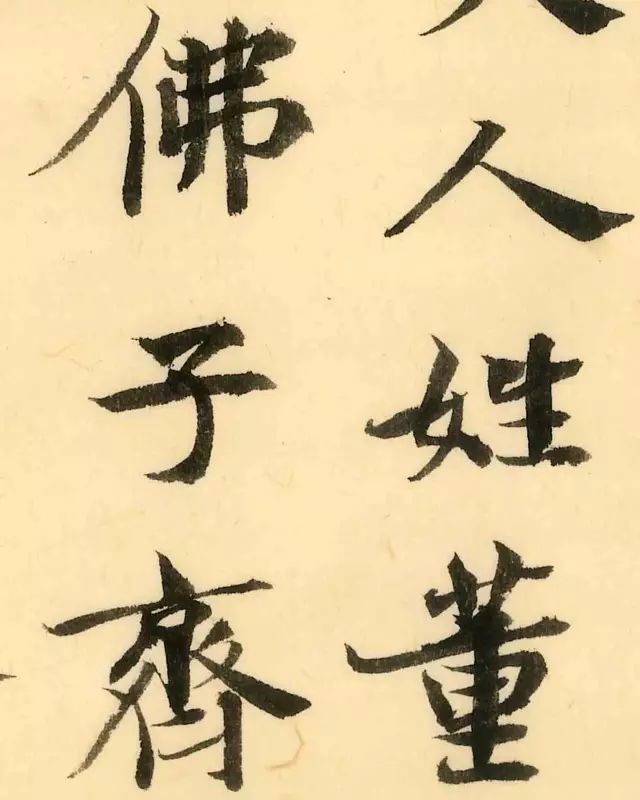 人姓董
佛子齊